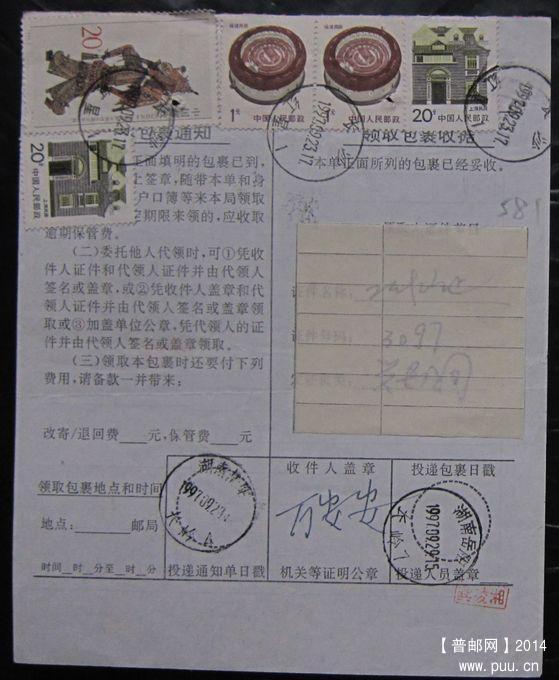 20分
福建民居
1元
中国人民邮政
福建民居
中国人民邮政
上海民居
20分
中国人民邮政
1997.09.23.17
1997.09.23.17
包裹通知
领取包裹收据
20分
中国人民邮政
上海民居
正面填明的包裹已到,
上签章, 随带本单和身
户口簿等来本局领取
定期限来领的, 应收取
逾期保管费。
本单正面所列的包裹已经妥收。
581
(二)委托他人代领时, 可①凭收
件人证件和代领人证件并由代领人
签名或盖章, 或②凭收件人盖章和代
领人证件并由代领人签名或盖章领
取或③加盖单位公章, 凭代领人的证
件并由代领人签名或盖章领取。
(三)领取本包裹时还要付下列
费用, 请备款一并带来:
证件名称:
证件号码: 3097
发证机关:
改寄/退回费___元, 保管费___元
领取包裹地点和时间
地点:______邮局
时间__时__分至__时__分
收件人盖章
投递包裹日戳
万安安
湖南岳阳
1997.09.29.15
投递通知单日戳
机关等证明公章
投递人员盖章
【普邮网】2014
www.puu.cn